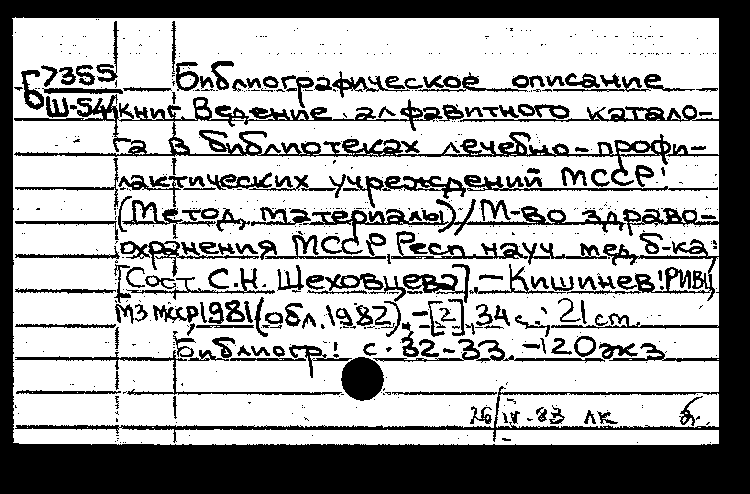 Б7355 Библиографическое описание
Ш-544 книг. Ведение алфавитного катало-
га в библиотеках лечебно-профи-
лактических учреждений МССР:
(Метод. материалы)/М-во здраво-
охранения МССР, Респ. науч. мед. б-ка;
[Сост. С.Н. Шеховцева]. - Кишинев: РИВЦ
МЗ МССР, 1981 (обл. 1982). - [2], 34 с.; 21 cm.
Библиогр.: с. 32-33. - 120 экз
26/IV-83 лк